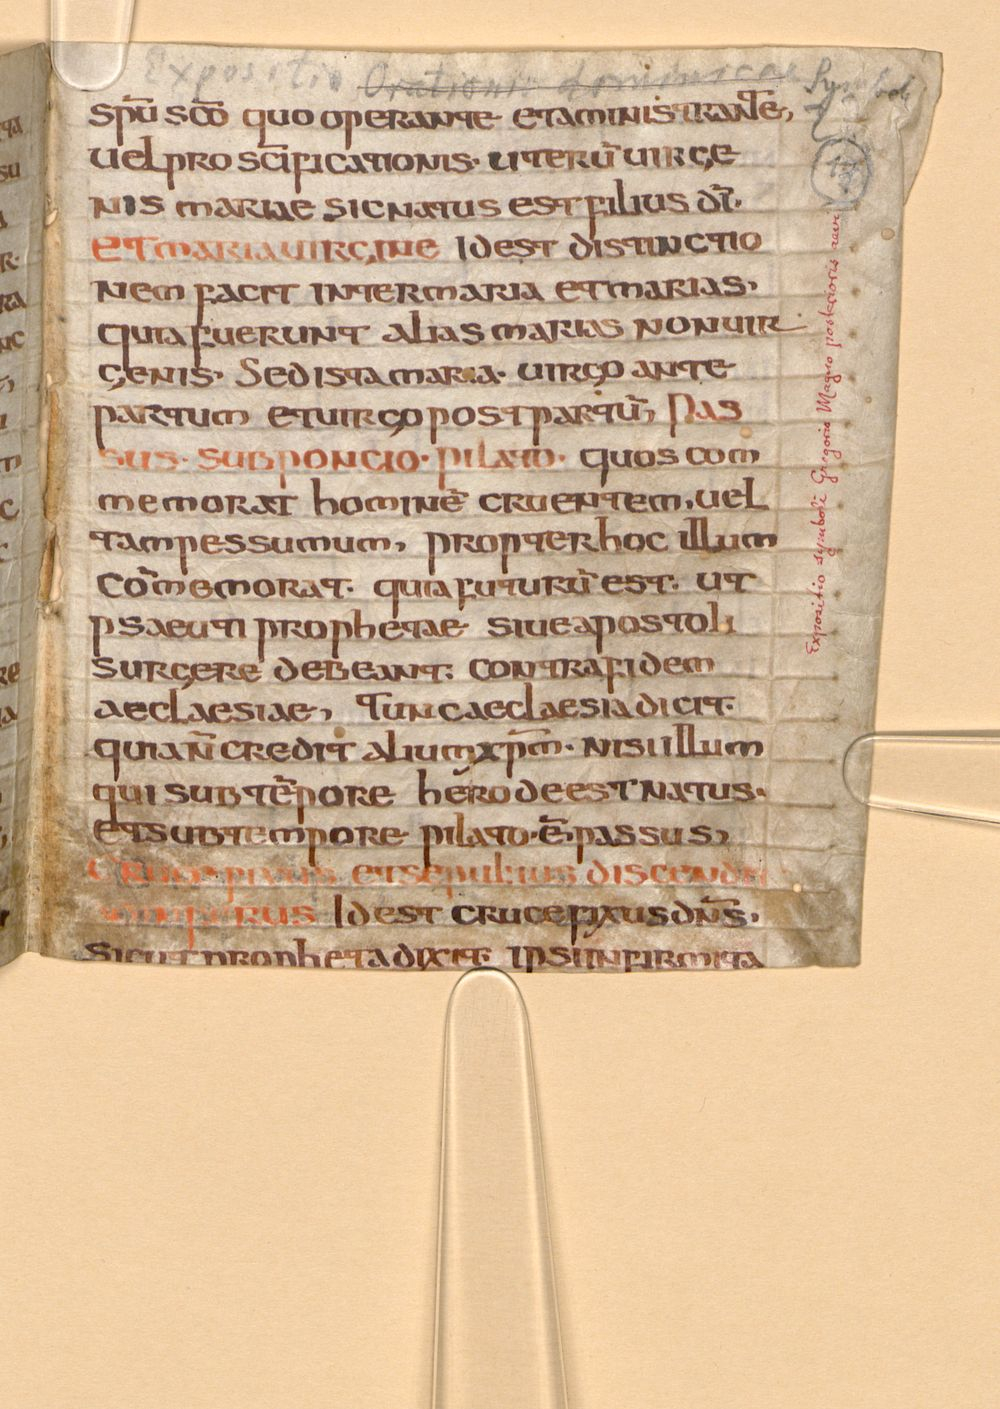 Expositio Orationis dominicae Symboli
sp̄u sc̄o quo operante et aministran̄te,
uel pro sc̄ificationis· uterū uirge
nis mariae sic natus est filius dī·
et maria uirgine Idest distinctio
nem facit inter maria et marias,
quia fuerunt alias marias non uir
genis· Sed ista maria· uirgo ante
partum et uirgo post partū, Pas
sus· sub poncio· pilato· quos com
memorat hominē cruentem, uel
tam pessumum, propter hoc illum
com̄emorat· quia futurū est· ut
psaeuti prophetae siue apostoli
surgere debeant· contra fidem
aeclaesiae, Tunc aeclaesia dicit·
quia n̄ credit alium xp̄m· nisi illum
qui sub tēpore herode est natus·
et sub tempore pilato· ē passus,
et sepultus discendit
Idest crucefixus dn̄s,
sicut propheta dixit· ips infirmita
17
Expositio symboli Gregorio Magno posterioris aevi